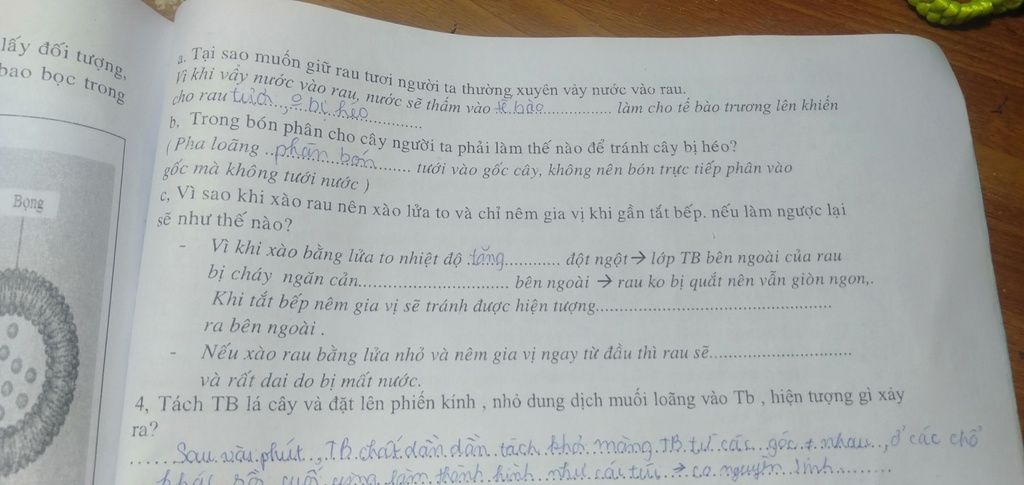 lấy đối tượng,
bao bọc trong
Bọng
a. Tại sao muốn giữ rau tươi người ta thường xuyên vảy nước vào rau.
Vì khi vẩy nước vào rau, nước sẽ thẩm vào tế bào................ làm cho tế bào trương lên khiến
cho rau bị héo................
b, Trong bón phân cho cây người ta phải làm thế nào để tránh cây bị héo?
( Pha loãng ..phân bón.......... tưới vào gốc cây, không nên bón trực tiếp phân vào
gốc mà không tưới nước )
c, Vì sao khi xào rau nên xào lửa to và chỉ nêm gia vị khi gần tắt bếp. nếu làm ngược lại
sẽ như thế nào?
- Vì khi xào bằng lửa to nhiệt độ .tăng............ đột ngột → lớp TB bên ngoài của rau
bị cháy ngăn cản................................ bên ngoài → rau ko bị quắt nên vẫn giòn ngon,.
Khi tắt bếp nêm gia vị sẽ tránh được hiện tượng..................................................
ra bên ngoài .
- Nếu xào rau bằng lửa nhỏ và nêm gia vị ngay từ đầu thì rau sẽ..............................
và rất dai do bị mất nước.
4, Tách TB lá cây và đặt lên phiến kính , nhỏ dung dịch muối loãng vào Tb , hiện tượng gì xảy
ra?
.....Sau vài phút.., TB chất dần dần tách khỏi màng TB từ các góc + nhau.., ở các chỗ
khác rồi cuối cùng làm thành hình như cái túi → co nguyên sinh........